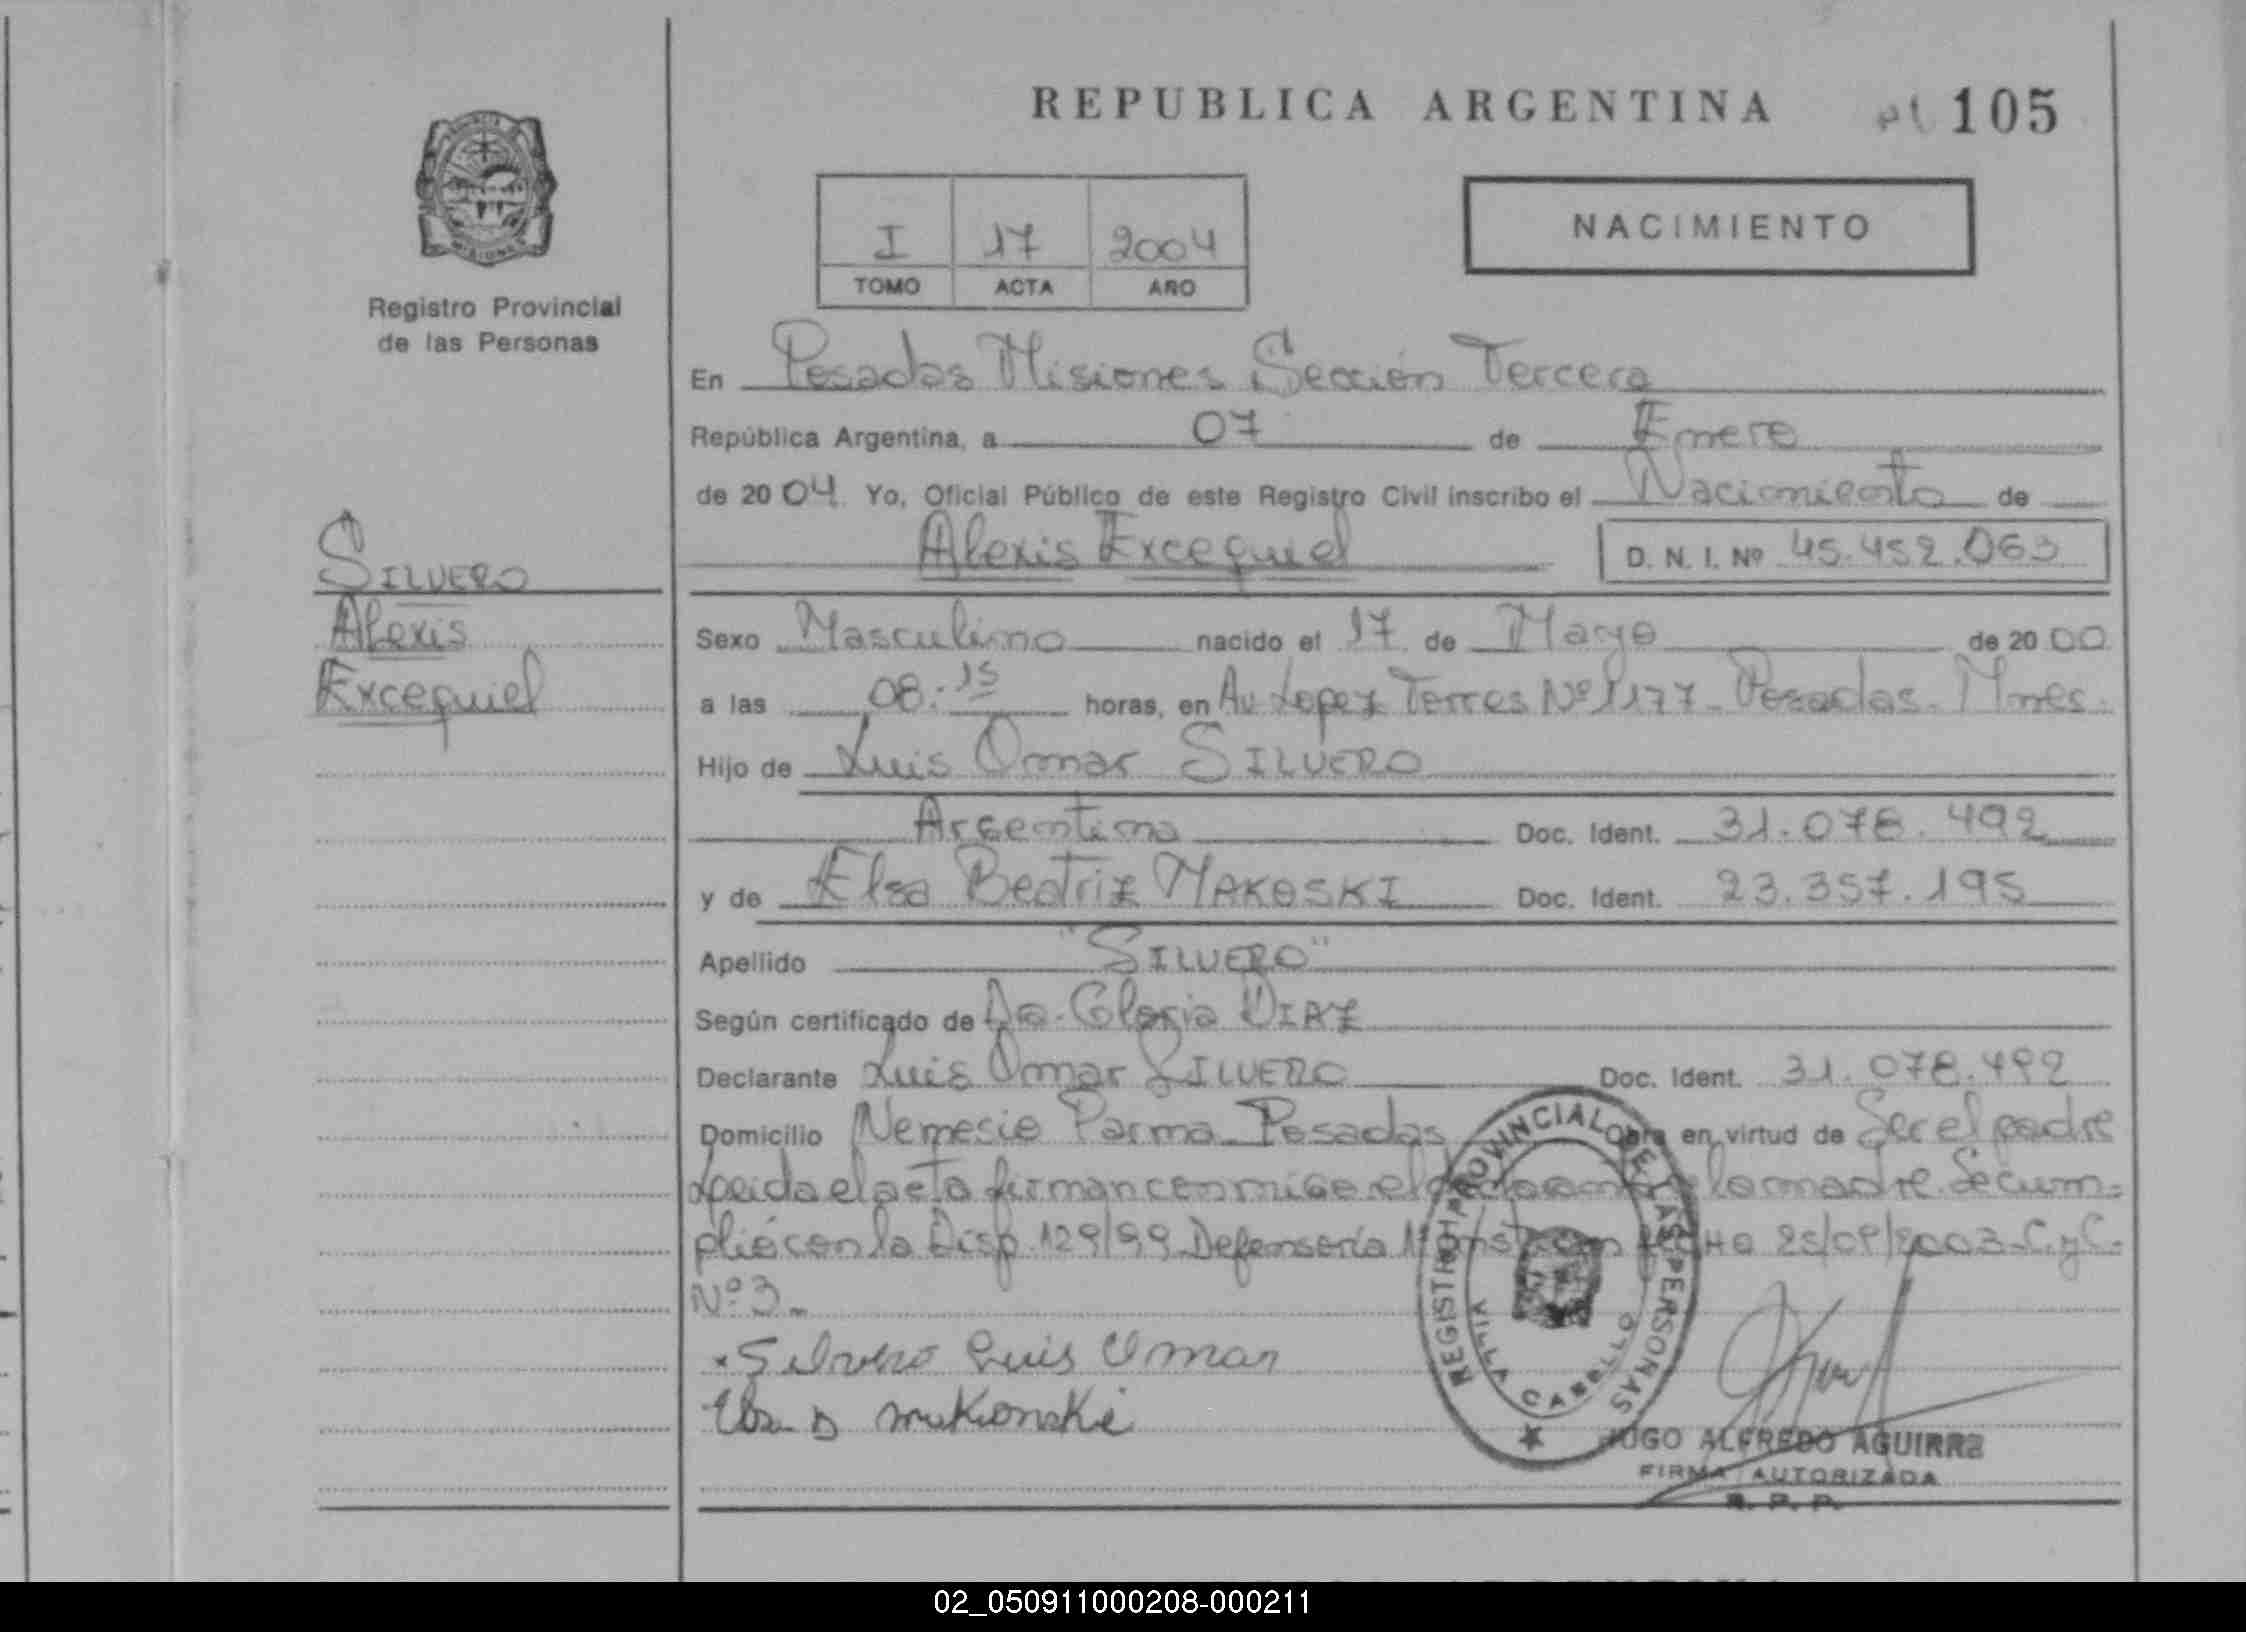 REPUBLICA ARGENTINA
105
PROVINCIA DE MISIONES
Registro Provincial
de las Personas
I 17 2004
TOMO ACTA AÑO
NACIMIENTO
En Posadas Misiones Sección Tercera
República Argentina, a 07 de Enero
de 2004. Yo, Oficial Público de este Registro Civil inscribo el Nacimiento de
Alexis Excequiel D. N. I. Nº 45.452.063
SILVERO
Alexis
Excequiel
Sexo Masculino nacido el 17 de Mayo de 2000
a las 08:15 horas, en Av. Lopez Torres Nº 1177 - Posadas. Mnes.
Hijo de Luis Omar SILVERO
Argentina Doc. Ident. 31.078.492
y de Elsa Beatriz MAKOSKI Doc. Ident. 23.357.195
Apellido "SILVERO"
Según certificado de Dra. Gloria DIAZ
Declarante Luis Omar SILVERO Doc. Ident. 31.078.492
Domicilio Nemesio Parma Posadas Obra en virtud de Ser el padre
Leida el acta firman conmigo el la madre. Se cum-
plió con la Disp. 129/99 Defensoría 2003 - C. y C.
Nº 3.
Silvero Luis Omar
Elsa B
REGISTRO PROVINCIAL DE LAS PERSONAS
VILLA CABELLO
HUGO ALFREDO AGUIRRE
FIRMA AUTORIZADA
R. P. P.
02_050911000208-000211